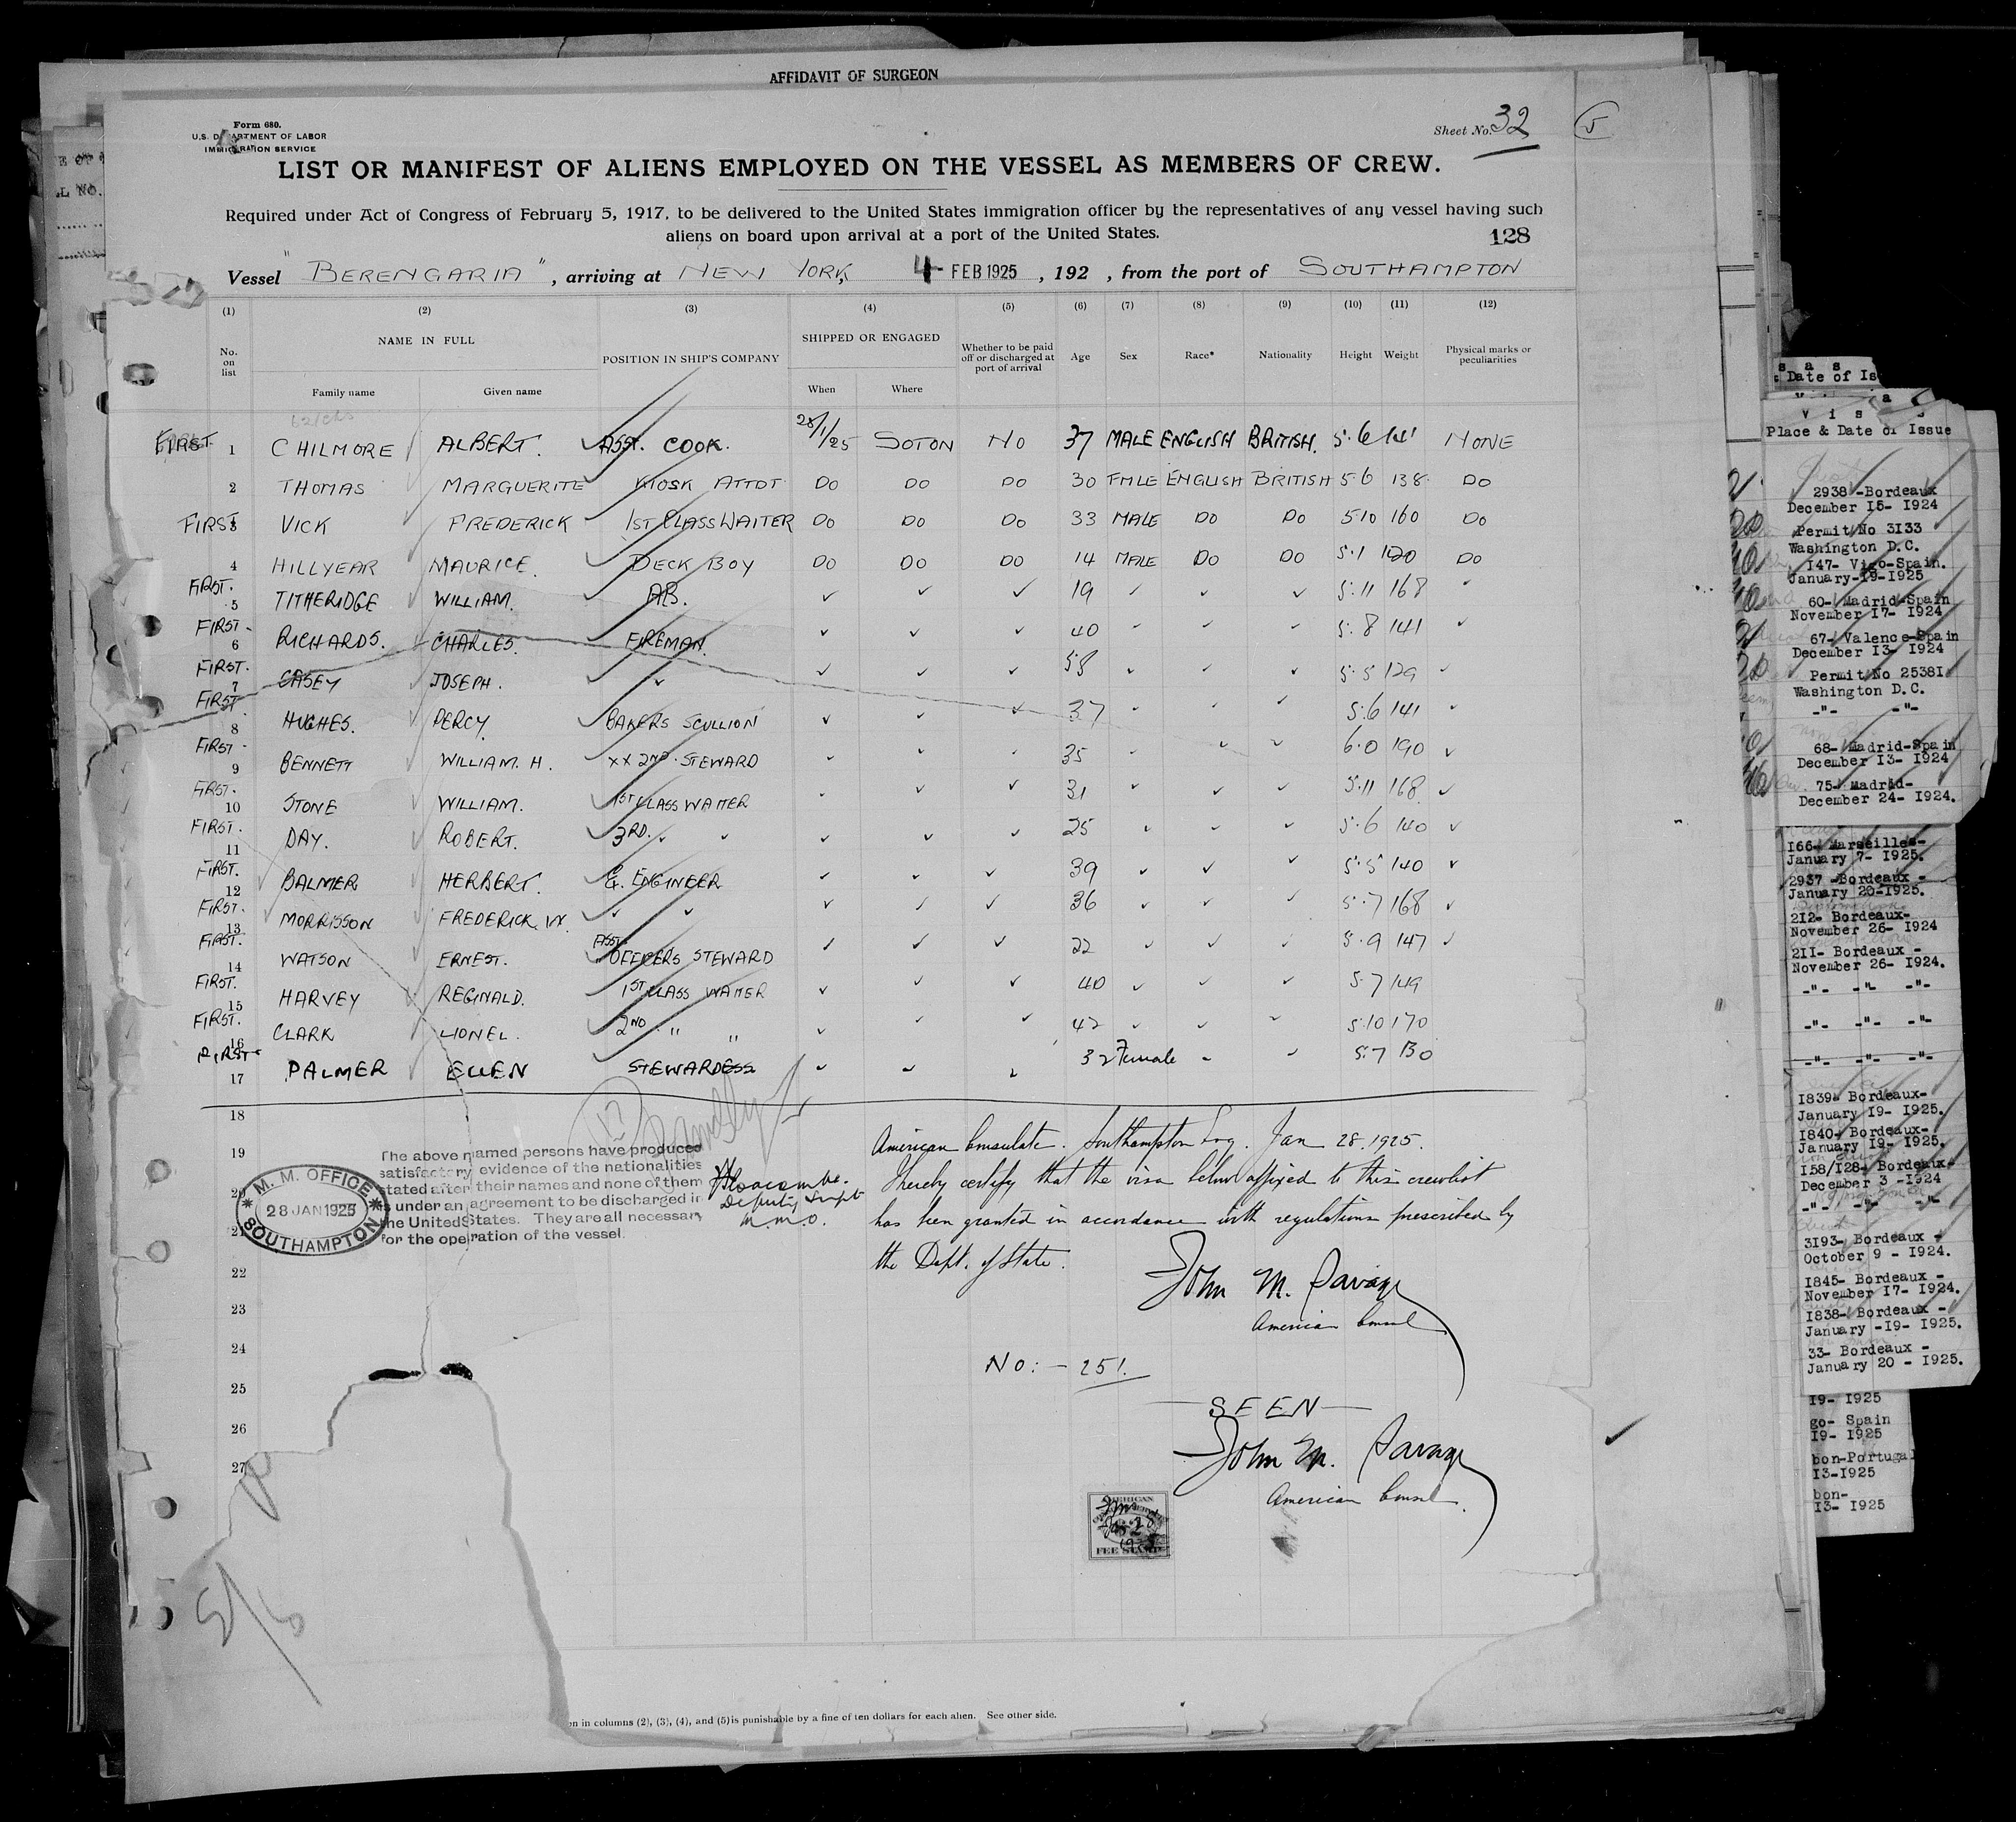 AFFIDAVIT OF SURGEON
Form 680.
U.S. DEPARTMENT OF LABOR
IMMIGRATION SERVICE
Sheet No. 32
5
LIST OR MANIFEST OF ALIENS EMPLOYED ON THE VESSEL AS MEMBERS OF CREW.
Required under Act of Congress of February 5, 1917, to be delivered to the United States immigration officer by the representatives of any vessel having such
aliens on board upon arrival at a port of the United States.
128
Vessel "BERENGARIA", arriving at NEW YORK, 4 FEB 1925, 192 , from the port of SOUTHAMPTON
(1) (2) (3) (4) (5) (6) (7) (8) (9) (10) (11) (12)
No. on list
NAME IN FULL
Family name Given name
POSITION IN SHIP'S COMPANY
SHIPPED OR ENGAGED
When Where
Whether to be paid off or discharged at port of arrival
Age Sex Race* Nationality Height Weight
Physical marks or peculiarities
FIRST 1 CHILMORE ALBERT. ASST. COOK. 28/1/25 SOTON NO 37 MALE ENGLISH BRITISH. 5.6 141 NONE
2 THOMAS MARGUERITE KIOSK ATTDT DO DO DO 30 FMLE ENGLISH BRITISH 5.6 138 DO
FIRST 3 VICK FREDERICK 1ST CLASS WAITER DO DO DO 33 MALE DO DO 510 160 DO
4 HILLYEAR MAURICE. DECK BOY DO DO DO 14 MALE DO DO 5.1 120 DO
FIRST. 5 TITHERIDGE WILLIAM. AB. ✓ ✓ ✓ 19 ✓ ✓ ✓ 5.11 168 ✓
FIRST 6 RICHARDS. CHARLES. FIREMAN. ✓ ✓ ✓ 40 ✓ ✓ ✓ 5.8 141 ✓
FIRST. 7 CASEY JOSEPH. ✓ ✓ ✓ ✓ 58 ✓ ✓ ✓ 5.5 129 ✓
FIRST 8 HUGHES. PERCY. BAKERS SCULLION ✓ ✓ ✓ 37 ✓ ✓ ✓ 5.6 141 ✓
FIRST 9 BENNETT WILLIAM. H. XX 2ND. STEWARD ✓ ✓ ✓ 35 ✓ ✓ ✓ 6.0 190 ✓
FIRST. 10 STONE WILLIAM. 1ST CLASS WAITER ✓ ✓ ✓ 31 ✓ ✓ ✓ 5.11 168 ✓
FIRST. 11 DAY. ROBERT. 3RD. ✓ ✓ ✓ ✓ ✓ 25 ✓ ✓ ✓ 5.6 140 ✓
FIRST. 12 BALMER HERBERT. E. ENGINEER ✓ ✓ ✓ 39 ✓ ✓ ✓ 5.5 140 ✓
FIRST. 13 MORRISSON FREDERICK. W. ✓ ✓ ✓ ✓ ✓ 36 ✓ ✓ ✓ 5.7 168 ✓
FIRST. 14 WATSON ERNEST. ASST. OFFICERS STEWARD ✓ ✓ ✓ 22 ✓ ✓ ✓ 5.9 147 ✓
FIRST. 15 HARVEY REGINALD. 1ST CLASS WAITER ✓ ✓ ✓ 40 ✓ ✓ ✓ 5.7 149
FIRST. 16 CLARK LIONEL. 2ND " " ✓ ✓ ✓ 42 ✓ ✓ ✓ 5.10 170
FIRST 17 PALMER ELLEN STEWARDESS ✓ ✓ ✓ 32 Female ✓ ✓ 5.7 130
18
19
20
21
22
23
24
25
26
27
The above named persons have produced
satisfactory evidence of the nationalities
stated after their names and none of them
is under an agreement to be discharged in
the United States. They are all necessary
for the operation of the vessel.
M. M. OFFICE
28 JAN 1925
SOUTHAMPTON
Deputy Supt
M.M.O.
American Consulate. Southampton Eng. Jan 28. 1925.
I hereby certify that the visa below affixed to this crewlist
has been granted in accordance with regulations prescribed by
the Dept. of State.
John M. Savage
American Consul
No:- 251.
SEEN
John M. Savage
American Consul.
AMERICAN
FEE STAMP
Jan 28
1925
on in columns (2), (3), (4), and (5) is punishable by a fine of ten dollars for each alien. See other side.
Date of Is
V i s
Place & Date of Issue
2938 -Bordeaux
December 15- 1924
Permit No 3133
Washington D.C.
147- Vigo-Spain.
January-19-1925
60- Madrid-Spain
November 17- 1924
67- Valence-Spain
December 13- 1924
Permit No 25381
Washington D.C.
-"- -"-
68- Madrid-Spain
December 13- 1924
75- Madrid-
December 24- 1924.
166- Marseilles-
January 7- 1925.
2937 -Bordeaux -
January 20-1925.
212- Bordeaux-
November 26- 1924
211- Bordeaux -
November 26- 1924.
-"- -"- -"-
-"- -"- -"-
-"- -"- -"-
1839- Bordeaux-
January 19- 1925.
1840- Bordeaux-
January 19- 1925.
158/128- Bordeaux-
December 3 -1924
-"- -"- -"-
3193- Bordeaux -
October 9 - 1924.
1845- Bordeaux -
November 17- 1924.
1838- Bordeaux -
January -19- 1925.
33- Bordeaux -
January 20 - 1925.
19- 1925
go- Spain
19- 1925
bon-Portugal
13-1925
bon-
13- 1925